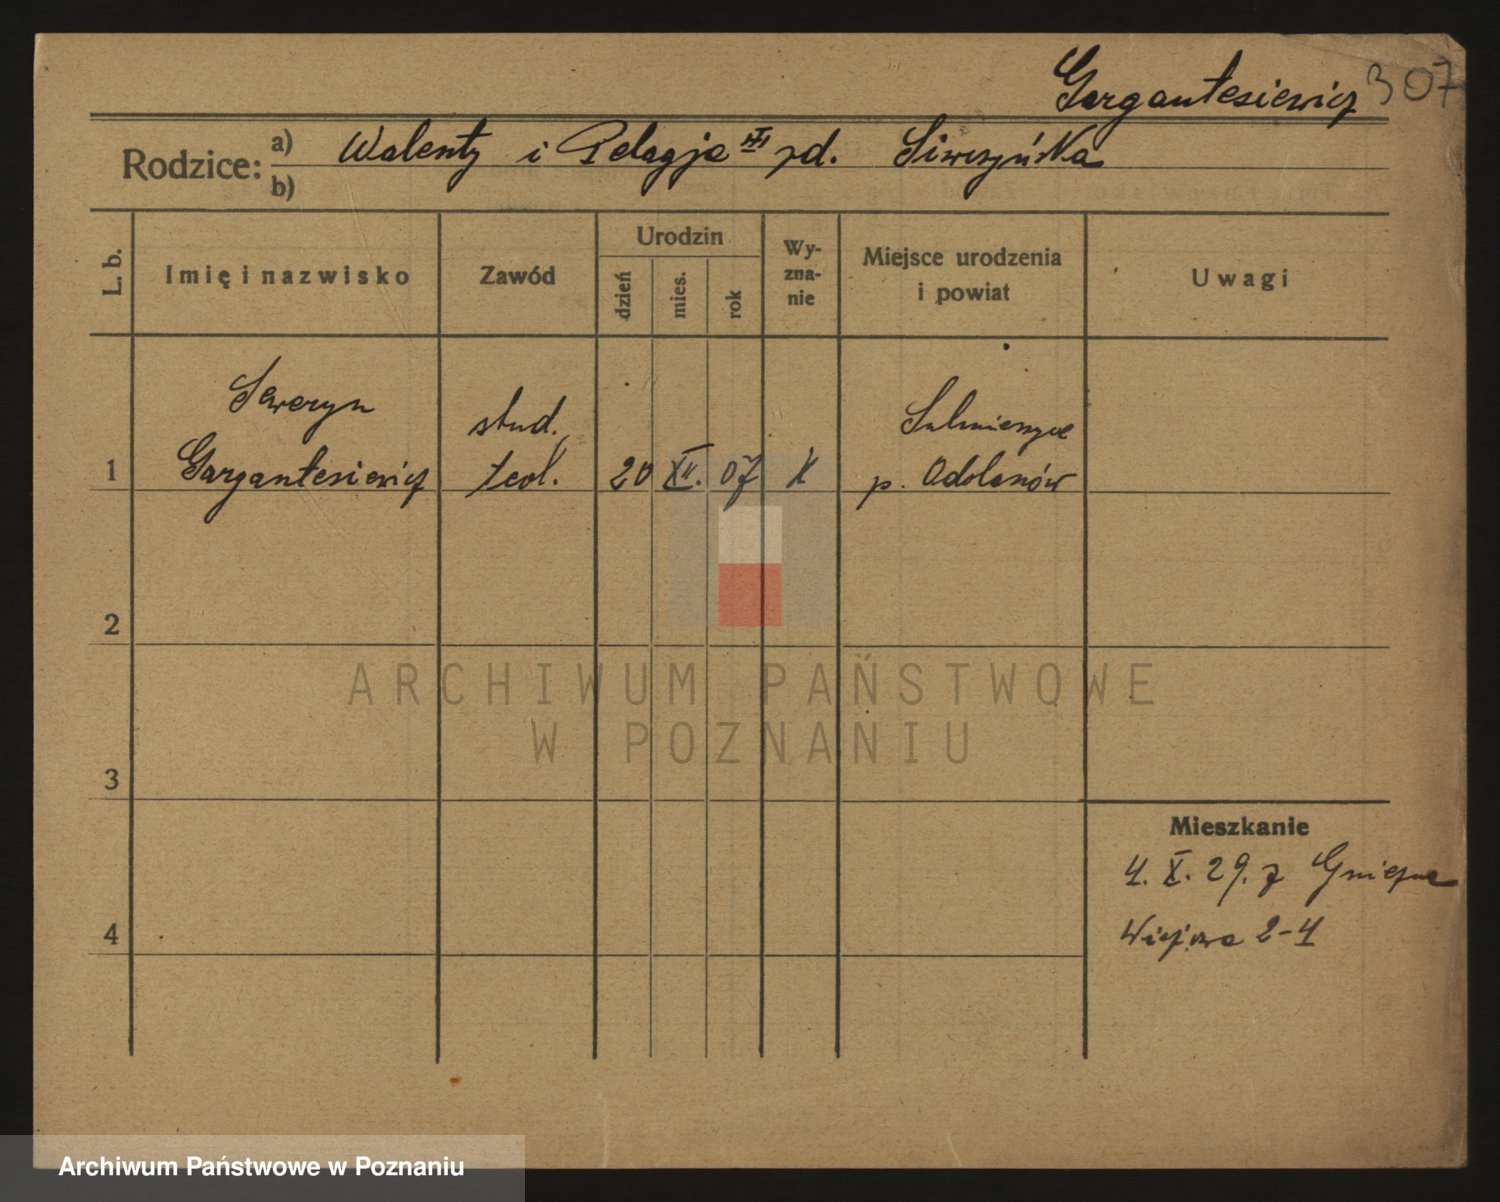 Gargantesiewicz 307
Rodzice: a) Walenty i Pelagja zd. Siwczyńska
b)
L. b.
Imię i nazwisko
Zawód
Urodzin
dzień
mies.
rok
Wy-
zna-
nie
Miejsce urodzenia
i powiat
Uwagi
Seweryn stud. Sulmierzyce
1 Gargantesiewicz teol. 20 XII. 07 K p. Odolanów
2
ARCHIWUM PAŃSTWOWE
W POZNANIU
3
Mieszkanie
4. X. 29. z Gniezna
4
2-4
Archiwum Państwowe w Poznaniu